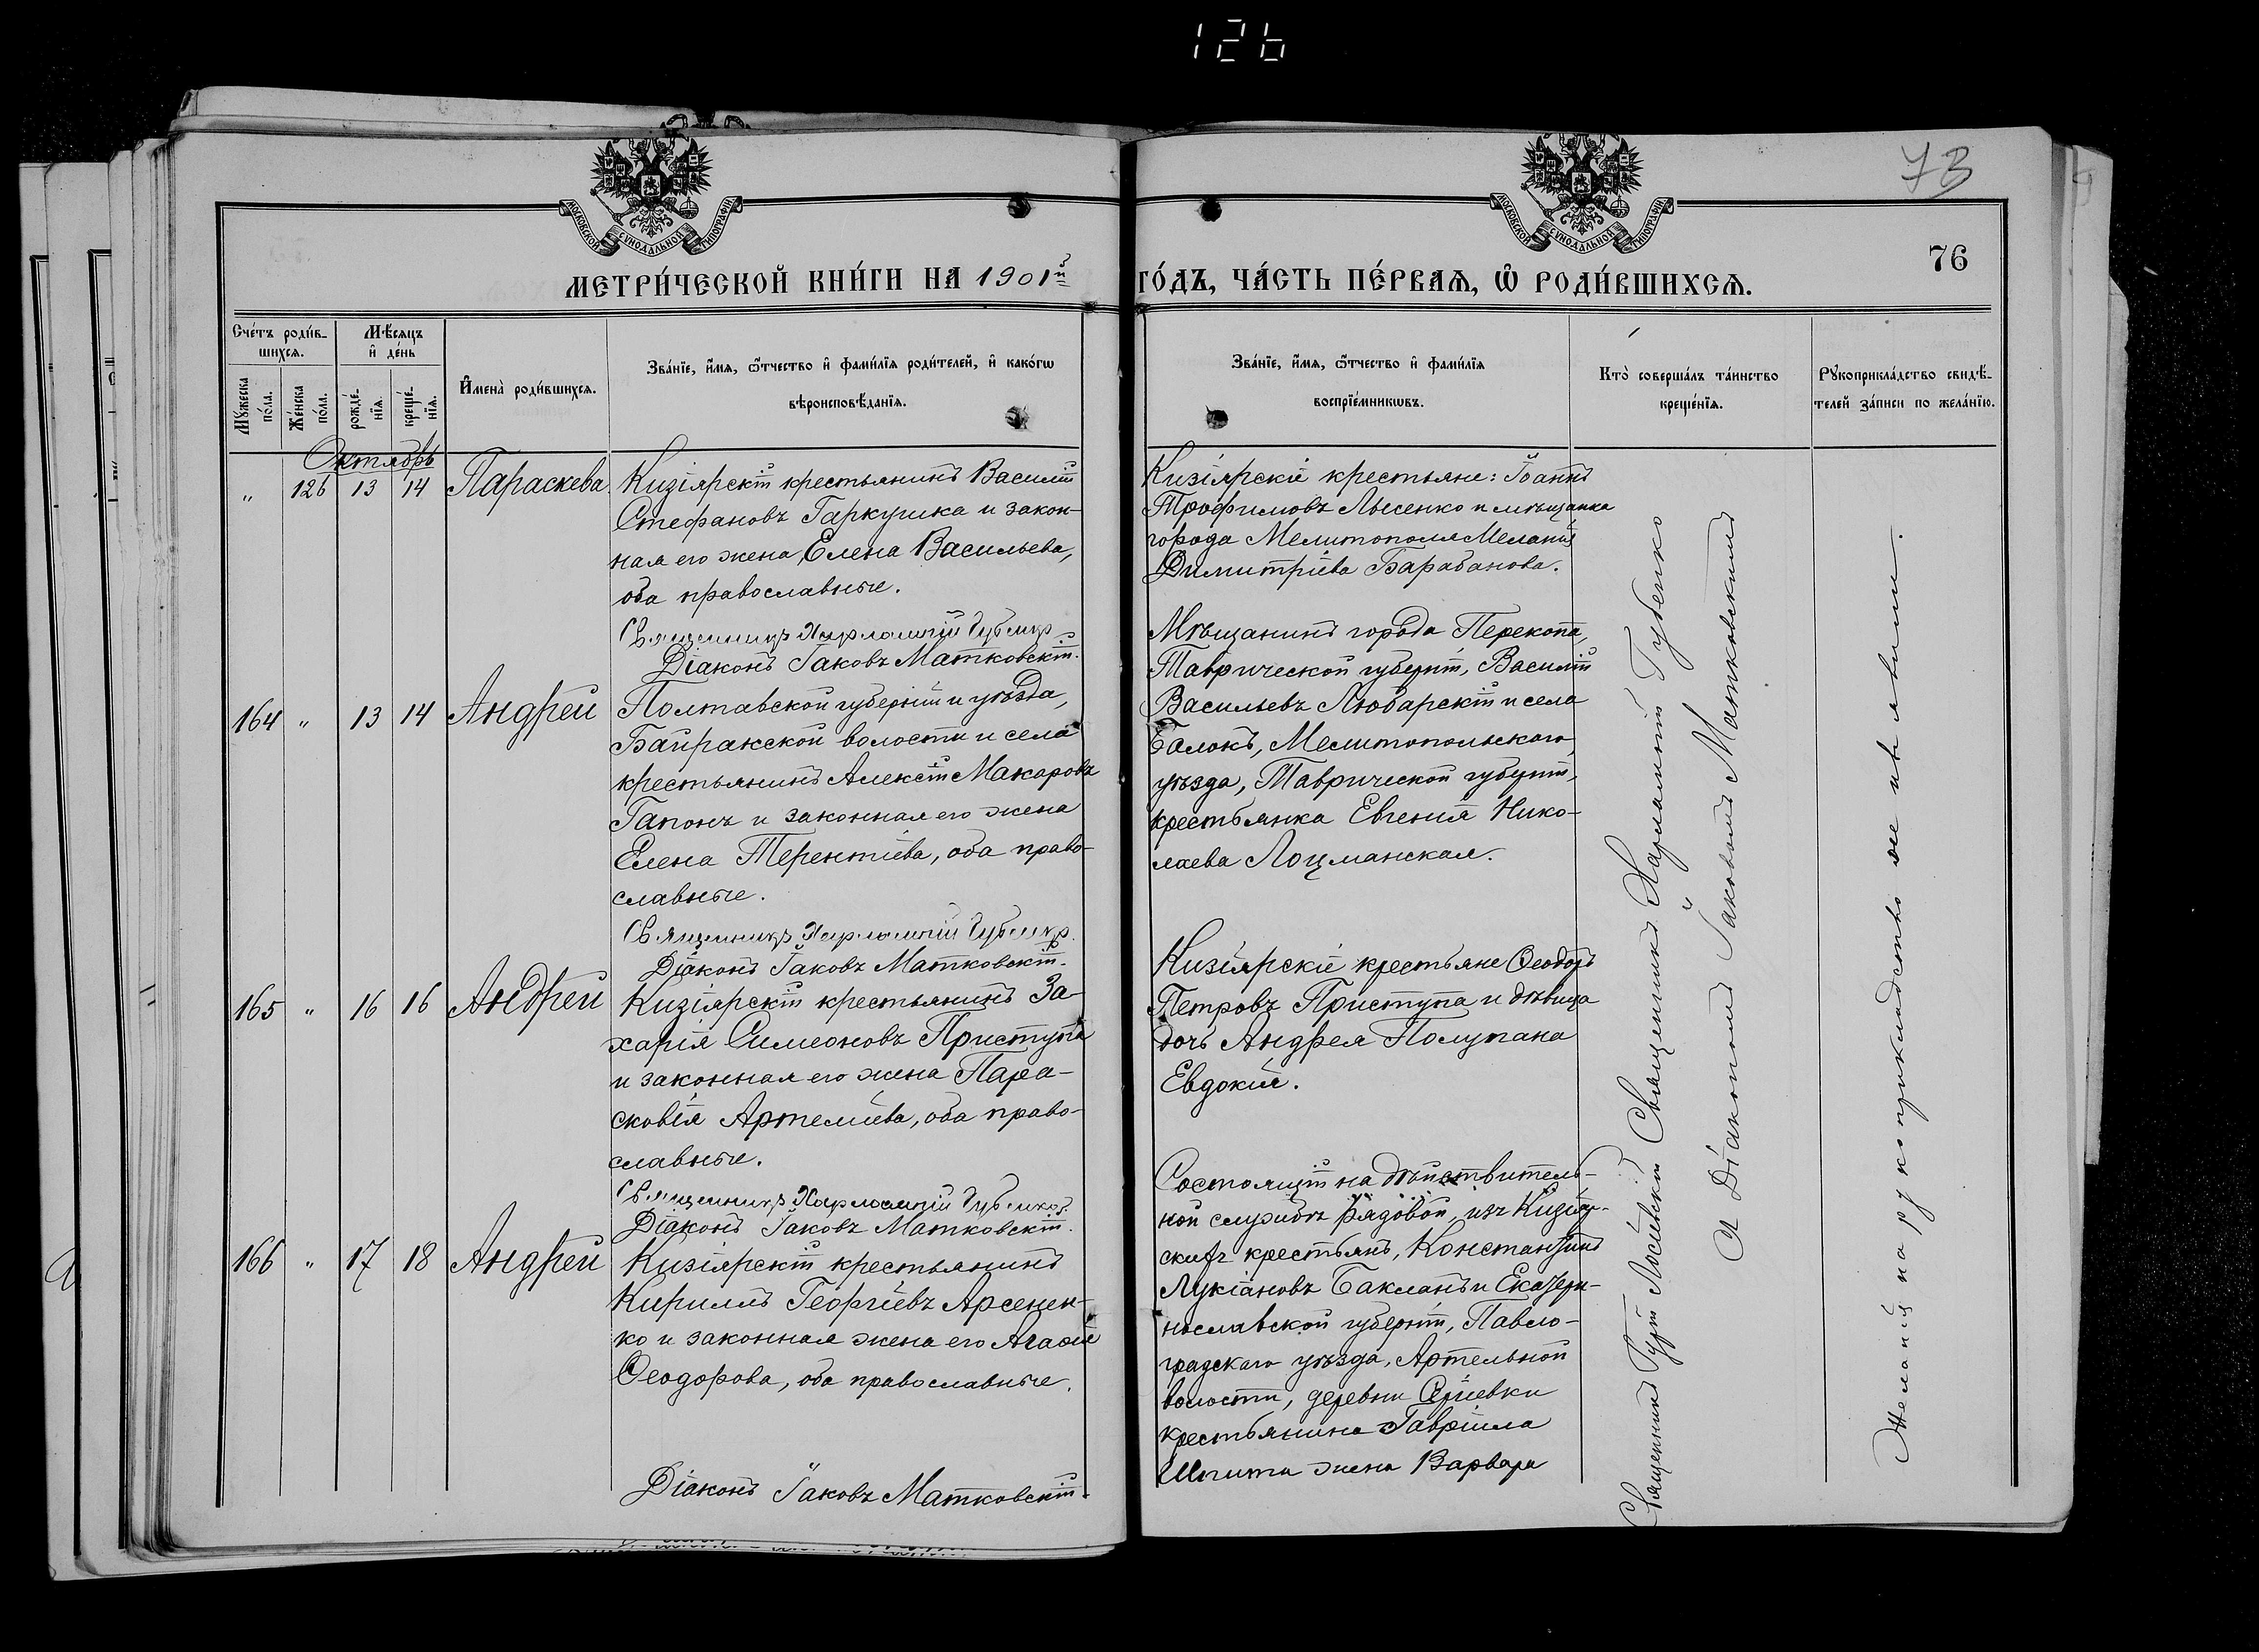 126
73
76
МОСКОВСКОЙ СѴНОДАЛЬНОЙ ТИПОГРАФІИ
МОСКОВСКОЙ СѴНОДАЛЬНОЙ ТИПОГРАФІИ
МЕТРИ́ЧЕСКОЙ КНИ́ГИ НА 1901й ГО́ДЪ, ЧА́СТЬ ПЕ́РВАѦ, Ѡ РОДИ́ВШИХСѦ.
Сче́тъ роди́в-
шихсѧ.
Мꙋ́жеска
по́ла.
Же́нска
по́ла.
Мѣ́сѧцъ
и҆ де́нь
рожде́-
нїѧ.
креще́-
нїѧ.
И҆мена̀ роди́вшихсѧ.
Зва́нїе, и҆́мѧ, ѻ҆́тчество и҆ фами́лїѧ роди́телей, и҆ како́гѡ
вѣроисповѣ́данїѧ.
Зва́нїе, и҆́мѧ, ѻ҆́тчество и҆ фами́лїѧ
воспрїе́мникѡвъ.
Кто̀ соверша́лъ та́инство
креще́нїѧ.
Рꙋкоприкла́дство свидѣ́-
телей за́писи по жела́нїю.
Октябрь
" 126 13 14 Параскева
Кизіярскій крестьянинъ Василій
Стефановъ Гаркушка и закон-
ная его жена Елена Васильева,
оба православные.
Священникъ Харлампій Губенко
Діаконъ Іаковъ Матковскій.
Кизіярскіе крестьяне: Іоаннъ
Трофимовъ Лысенко и мѣщанка
города Мелитополя Меланія
Димитріева Барабанова.
164 " 13 14 Андрей
Полтавской губерніи и уѣзда,
Байракской волости и села
крестьянинъ Алексій Макаровъ
Гапонъ и законная его жена
Елена Терентіева, оба право-
славные.
Священникъ Харлампій Губенко
Діаконъ Іаковъ Матковскій.
Мѣщанинъ города Перекопа,
Таврической губерніи, Василій
Васильевъ Любарскій и села
Балокъ, Мелитопольскаго
уѣзда, Таврической губерніи,
крестьянка Евгенія Нико-
лаева Лоцманская.
165 " 16 16 Андрей
Кизіярскій крестьянинъ За-
харія Симеоновъ Приступа
и законная его жена Пара-
сковія Артеміева, оба право-
славные.
Священникъ Харлампій Губенко
Діаконъ Іаковъ Матковскій.
Кизіярскіе крестьяне Ѳеодоръ
Петровъ Приступа и дѣвица
дочь Андрея Полупана
Евдокія.
166 " 17 18 Андрей
Кизіярскій крестьянинъ
Кириллъ Георгіевъ Арсенен-
ко и законная жена его Агафія
Ѳеодорова, оба православные.
Діаконъ Іаковъ Матковскій.
Состоящій на дѣйствитель-
ной службѣ рядовой, изъ Кизіяр-
скихъ крестьянъ, Константинъ
Лукіановъ Бакланъ и Екатери-
нославской губерніи, Павло-
градскаго уѣзда, Артельной
волости, деревни Сергіевки
крестьянина Гавріила
Шпита жена Варвара
Священникъ Гурій Лосіевскій Священникъ Харлампій Губенко
и Діакономъ Іаковомъ Матковскимъ
Желанія на рукоприкладство не изъявили.